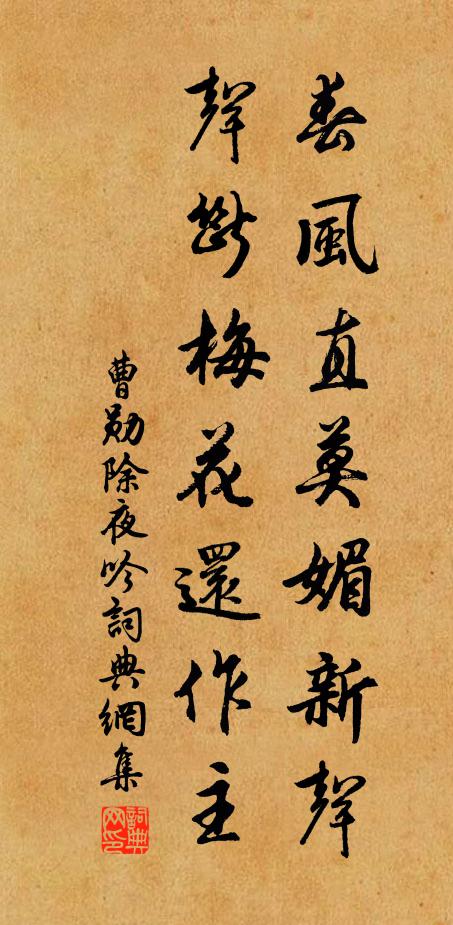 春風直莫媚新聲
聲斷梅花還作主
曹勛除夜吟詞典網集
詞典网印